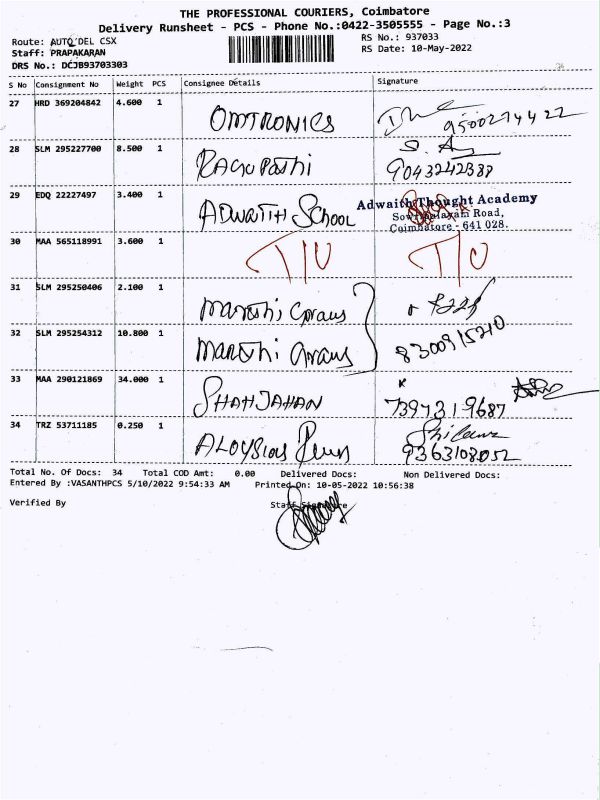 THE PROFESSIONAL COURIERS, Coimbatore
Delivery Runsheet - PCS - Phone No.:0422-3505555 - Page No.:3
Route: AUTO DEL CSX
RS No.: 937033
Staff: PRAPAKARAN
RS Date: 10-May-2022
DRS No.: DCJB93703303
S No Consignment No Weight PCS Consignee Details Signature
27 HRD 369204842 4.600 1 OMTRONICS 9500274422
28 SLM 295227700 8.500 1 RAGUPATHI 9043242388
29 EDQ 22227497 3.400 1 ADWAITH SCHOOL
Adwaith Thought Academy
Road,
Coimbatore - 641 028.
30 MAA 565118991 3.600 1 T/O T/O
31 SLM 295250406 2.100 1
32 SLM 295254312 10.800 1 8300915210
33 MAA 290121869 34.000 1 SHAHJAHAN 7397319687
34 TRZ 53711185 0.250 1 ALOYSIOUS 9363108052
Total No. Of Docs: 34 Total COD Amt: 0.00 Delivered Docs: Non Delivered Docs:
Entered By :VASANTHPCS 5/10/2022 9:54:33 AM Printed On: 10-05-2022 10:56:38
Verified By Staff Signature